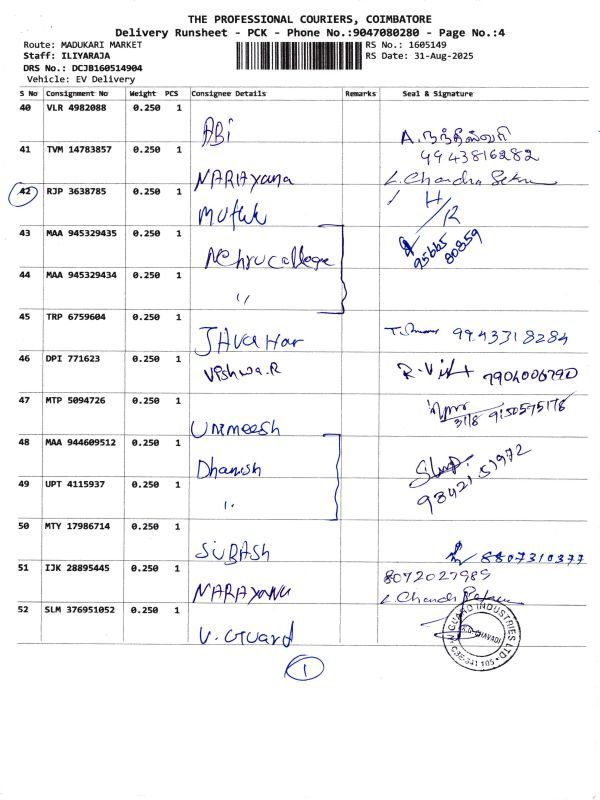 THE PROFESSIONAL COURIERS, COIMBATORE
Delivery Runsheet - PCK - Phone No.:9047080280 - Page No.:4
Route: MADUKARI MARKET RS No.: 1605149
Staff: ILIYARAJA RS Date: 31-Aug-2025
DRS No.: DCJB160514904
Vehicle: EV Delivery
S No Consignment No Weight PCS Consignee Details Remarks Seal & Signature
40 VLR 4982088 0.250 1
ABi
9943816282
41 TVM 14783857 0.250 1
NARAYana L. Chandra Sekar
42 RJP 3638785 0.250 1
Muthu
43 MAA 945329435 0.250 1
Nehru College 95665 80859
44 MAA 945329434 0.250 1
〃
45 TRP 6759604 0.250 1
JAvaHar 9943318284
46 DPI 771623 0.250 1
Vishwa.R 7904006790
47 MTP 5094726 0.250 1
Unimeesh 31/8 9150575178
48 MAA 944609512 0.250 1
Dhanish
49 UPT 4115937 0.250 1
〃 9842151972
50 MTY 17986714 0.250 1
SUBASh 8807310377
51 IJK 28895445 0.250 1 8072027989
NARAYANA
52 SLM 376951052 0.250 1
V. GUARD V-GUARD INDUSTRIES LTD.
K.G. CHAVADI
CBE-641 105
1